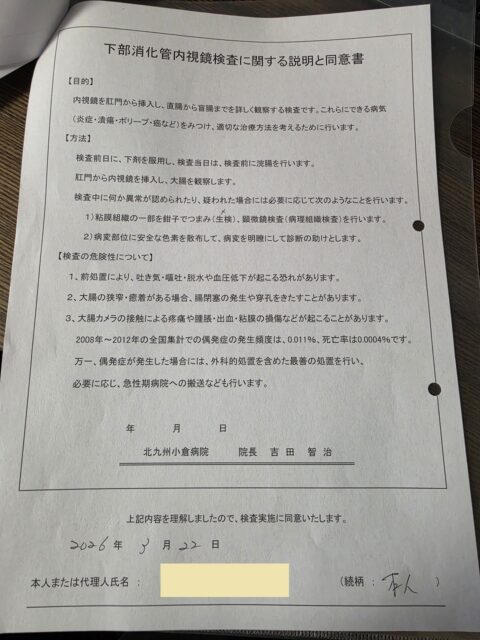 下部消化管内視鏡検査に関する説明と同意書
【目的】
内視鏡を肛門から挿入し、直腸から盲腸までを詳しく観察する検査です。これらにできる病気
（炎症・潰瘍・ポリープ・癌など）をみつけ、適切な治療方法を考えるために行います。
【方法】
検査前日に、下剤を服用し、検査当日は、検査前に浣腸を行います。
肛門から内視鏡を挿入し、大腸を観察します。
検査中に何か異常が認められたり、疑われた場合には必要に応じて次のようなことを行います。
1）粘膜組織の一部を鉗子でつまみ（生検）、顕微鏡検査（病理組織検査）を行います。
2）病変部位に安全な色素を散布して、病変を明瞭にして診断の助けとします。
【検査の危険性について】
1、前処置により、吐き気・嘔吐・脱水や血圧低下が起こる恐れがあります。
2、大腸の狭窄・癒着がある場合、腸閉塞の発生や穿孔をきたすことがあります。
3、大腸カメラの接触による疼痛や腫脹・出血・粘膜の損傷などが起こることがあります。
2008年～2012年の全国集計での偶発症の発生頻度は、0.011％、死亡率は0.0004％です。
万一、偶発症が発生した場合には、外科的処置を含めた最善の処置を行い、
必要に応じ、急性期病院への搬送なども行います。
年 月 日
北九州小倉病院 院長 吉田 智治
上記内容を理解しましたので、検査実施に同意いたします。
2026 年 3 月 22 日
本人または代理人氏名 ： （続柄 ： 本人 ）